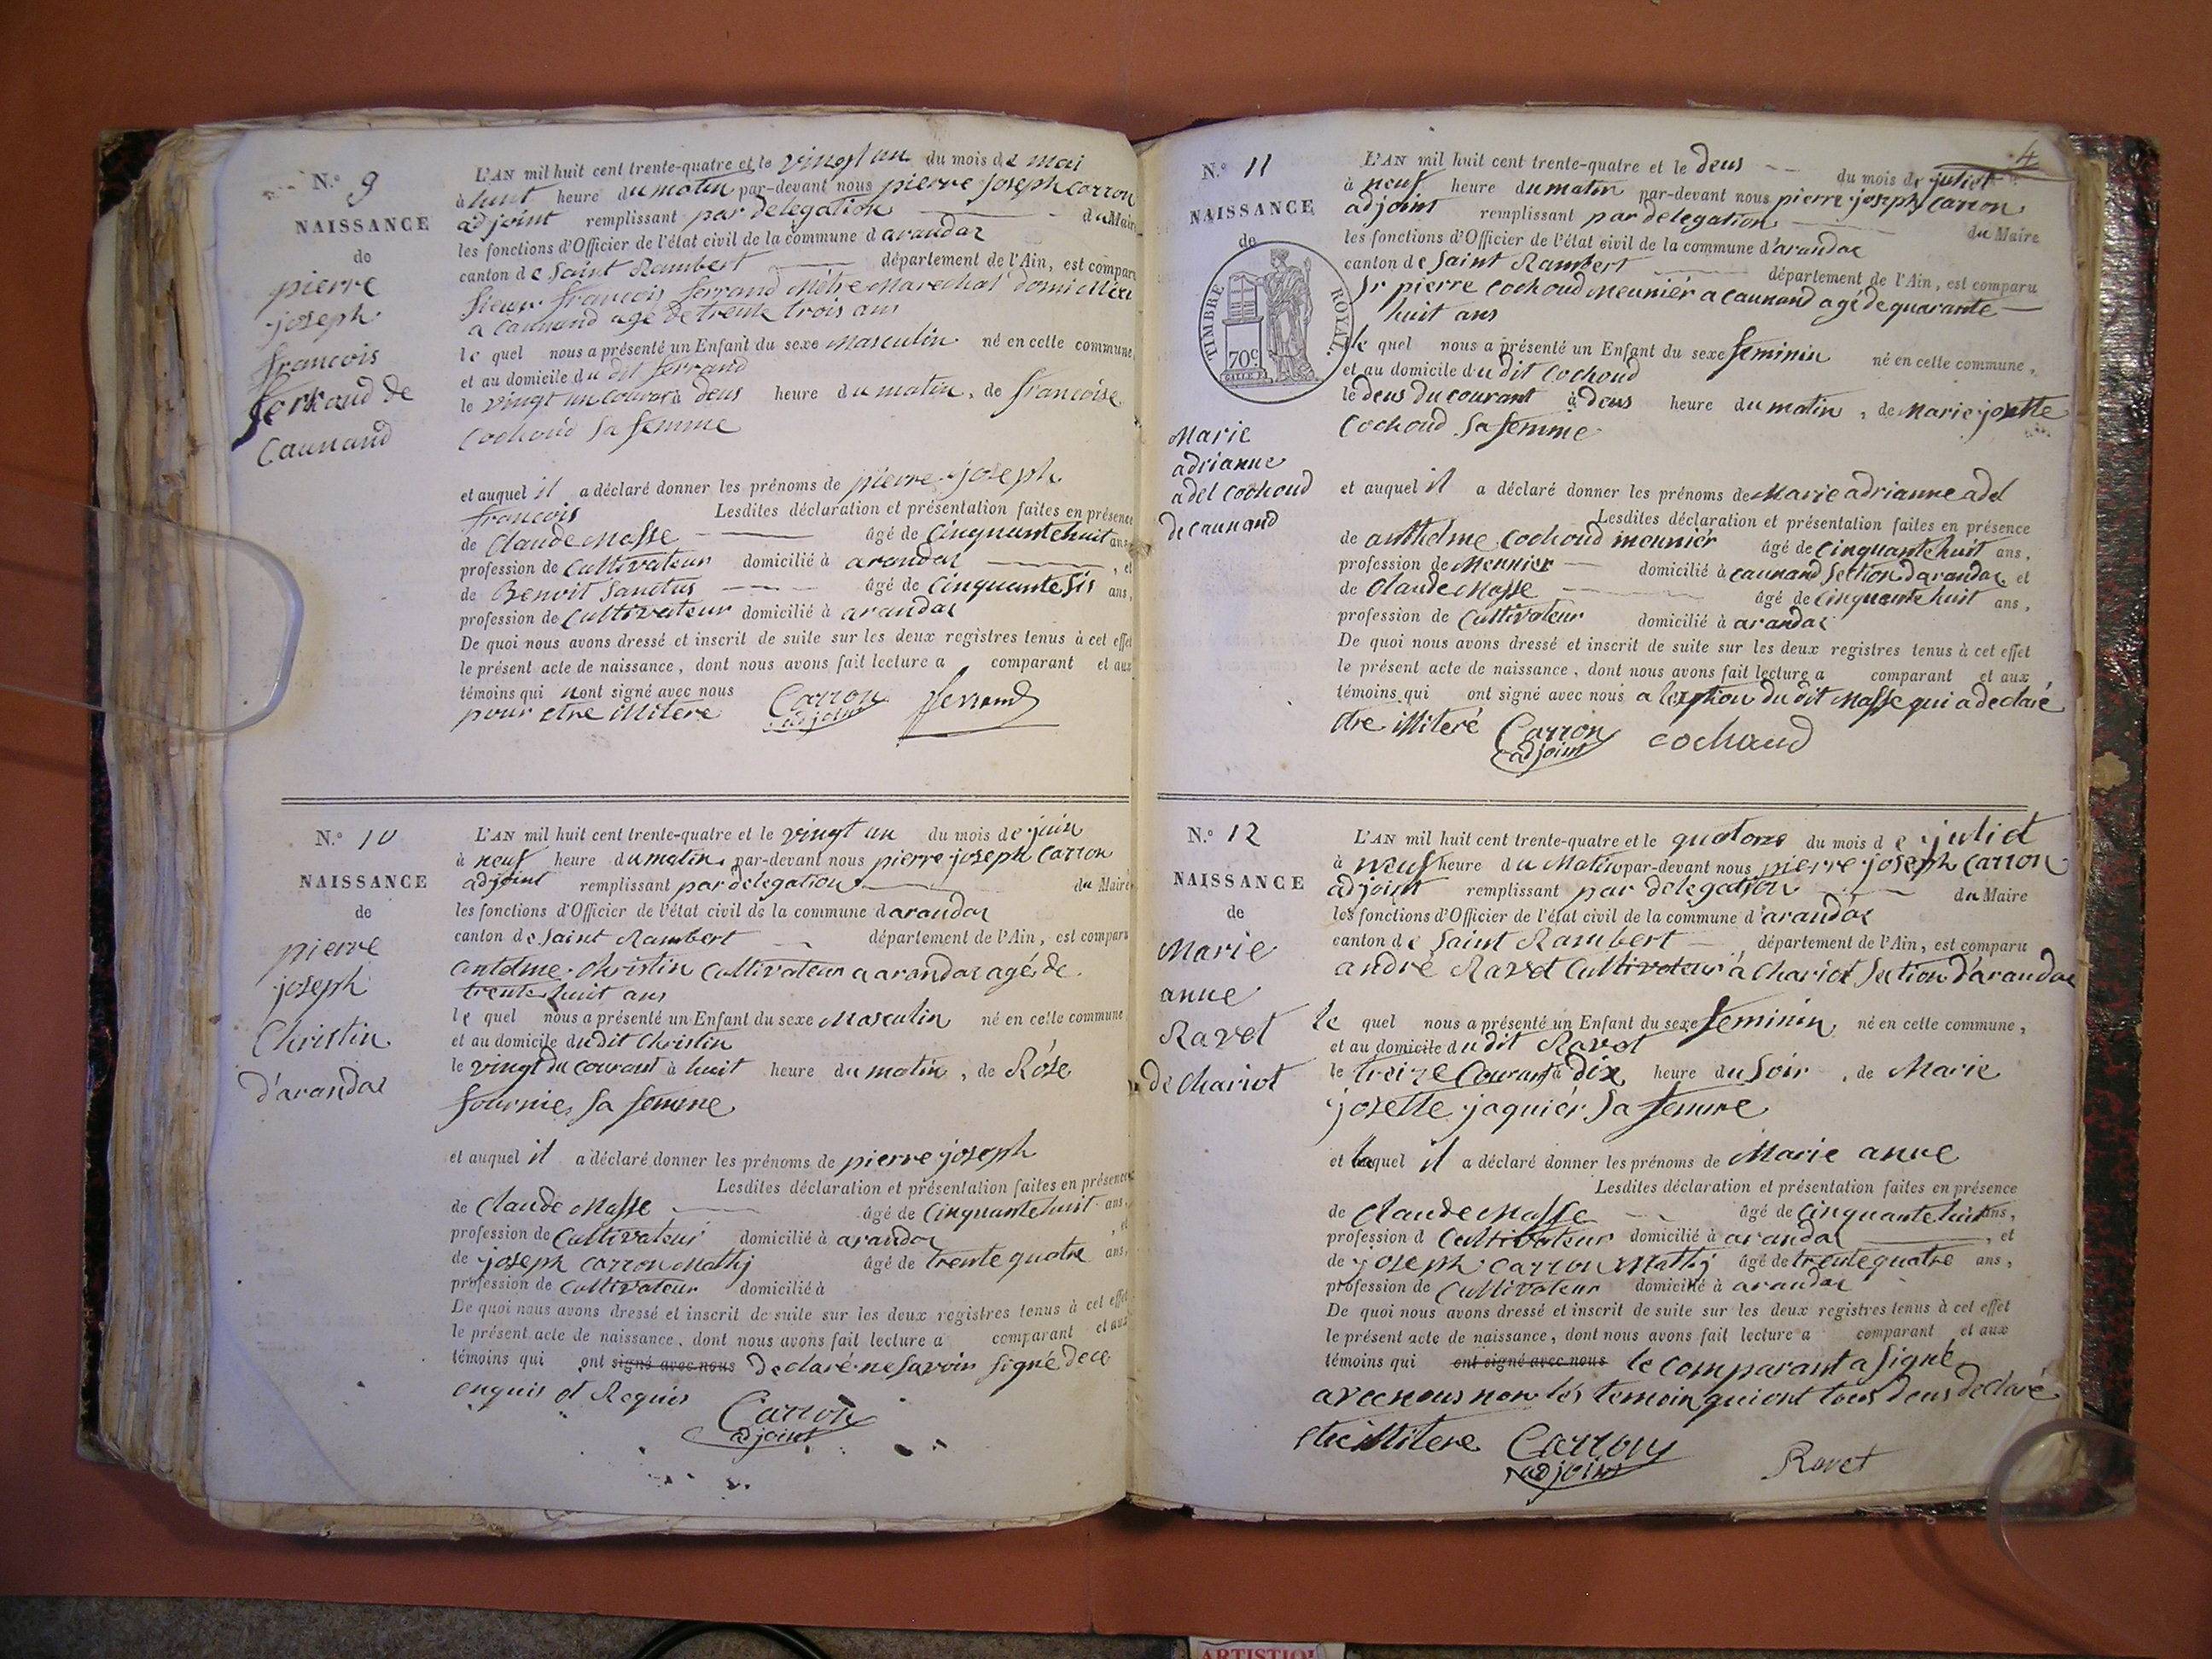 N.º 9
NAISSANCE
de
pierre
joseph
francois
ferraud de
Caunand
L'AN mil huit cent trente-quatre et le vingt un du mois de mai
à huit heure du matin par-devant nous pierre joseph carron
adjoint remplissant par delegation du Maire
les fonctions d'Officier de l'état civil de la commune d arandas
canton de Saint Rambert département de l'Ain, est comparu
Sieur francois ferrand Métre Marechal domicilié
a Caunand age de trente trois ans
le quel nous a présenté un Enfant du sexe Masculin né en cette commune,
et au domicile du dit ferrand
le vingt un courant à deus heure du matin, de francoise
Cochoud Sa femme
et auquel il a déclaré donner les prénoms de pierre joseph
francois Lesdites déclaration et présentation faites en présence
de Claude Masse âgé de Cinquante huit ans,
profession de Cultivateur domicilié à arandas , et
de Benoit Sanctus âgé de Cinquante sis ans,
profession de Cultivateur domicilié à arandas
De quoi nous avons dressé et inscrit de suite sur les deux registres tenus à cet effet
le présent acte de naissance, dont nous avons fait lecture a comparant et aux
témoins qui nont signé avec nous
pour etre illitere Carron ferrand
adjoint
N.º 10
NAISSANCE
de
pierre
joseph
Christin
d'arandas
L'AN mil huit cent trente-quatre et le vingt un du mois de juin
à neuf heure du matin par-devant nous pierre joseph Carron
adjoint remplissant par delegation du Maire
les fonctions d'Officier de l'état civil de la commune d arandas
canton de Saint Rambert département de l'Ain, est comparu
antelme Christin Cultivateur a arandas agé de
trente huit ans
le quel nous a présenté un Enfant du sexe Masculin né en cette commune
et au domicile du dit Christin
le vingt du courant à huit heure du matin, de Rose
fournier Sa femme
et auquel il a déclaré donner les prénoms de pierre joseph
Lesdites déclaration et présentation faites en présence
de Claude Masse âgé de Cinquante huit ans,
profession de Cultivateur domicilié à arandas , et
de joseph carron Mathÿ âgé de trente quatre ans,
profession de Cultivateur domicilié à
De quoi nous avons dressé et inscrit de suite sur les deux registres tenus à cet effet
le présent acte de naissance, dont nous avons fait lecture a comparant et aux
témoins qui ont signé avec nous declaré ne Savoir signé de ce
enquis et Requis Carron
adjoint
4
N.º 11
NAISSANCE
de
TIMBRE ROYAL.
70c
Marie
adrianne
adel cochoud
de Caunand
L'AN mil huit cent trente-quatre et le deus du mois de juliet
à neuf heure du matin par-devant nous pierre joseph Carron
adjoint remplissant par delegation du Maire
les fonctions d'Officier de l'état civil de la commune d'arandas
canton de Saint Rambert département de l'Ain, est comparu
Sr pierre Cochoud Meunier a Caunand agé de quarante
huit ans
le quel nous a présenté un Enfant du sexe feminin né en cette commune,
et au domicile du dit Cochoud
le deus du courant à deus heure du matin, de Marie josette
Cochoud Sa femme
et auquel il a déclaré donner les prénoms de Marie adrianne adel
Lesdites déclaration et présentation faites en présence
de anthelme Cochoud meunier âgé de Cinquante huit ans,
profession de Meunier domicilié à Caunand Section d'arandas, et
de Claude Masse âgé de Cinquante huit ans,
profession de Cultivateur domicilié à arandas
De quoi nous avons dressé et inscrit de suite sur les deux registres tenus à cet effet
le présent acte de naissance, dont nous avons fait lecture a comparant et aux
témoins qui ont signé avec nous a lexption du dit Masse qui a declaré
etre illiteré Carron cochaud
adjoint
N.º 12
NAISSANCE
de
Marie
anne
Ravet
de Chariot
L'AN mil huit cent trente-quatre et le quatorze du mois de juliet
à neuf heure du Matin par-devant nous pierre joseph Carron
adjoint remplissant par delegation du Maire
les fonctions d'Officier de l'état civil de la commune d'arandas
canton de Saint Rambert département de l'Ain, est comparu
andré Ravet Cultivateur à Chariot Section d'arandas
le quel nous a présenté un Enfant du sexe feminin, né en cette commune,
et au domicile du dit Ravet
le treize Courant à dix heure du Soir, de Marie
josette jaquiér Sa femme
et laquel il a déclaré donner les prénoms de Marie anne
Lesdites déclaration et présentation faites en présence
de Claude Masse âgé de Cinquante huit ans,
profession d Cultivateur domicilié à arandas , et
de joseph Carron Mathÿ âgé de trente quatre ans,
profession de Cultivateur domicilié à arandas
De quoi nous avons dressé et inscrit de suite sur les deux registres tenus à cet effet
le présent acte de naissance, dont nous avons fait lecture a comparant et aux
témoins qui ont signé avec nous le comparant a signé
avec nous non les temoin qui ont tous deus declaré
etre illitere Carron Ravet
adjoint